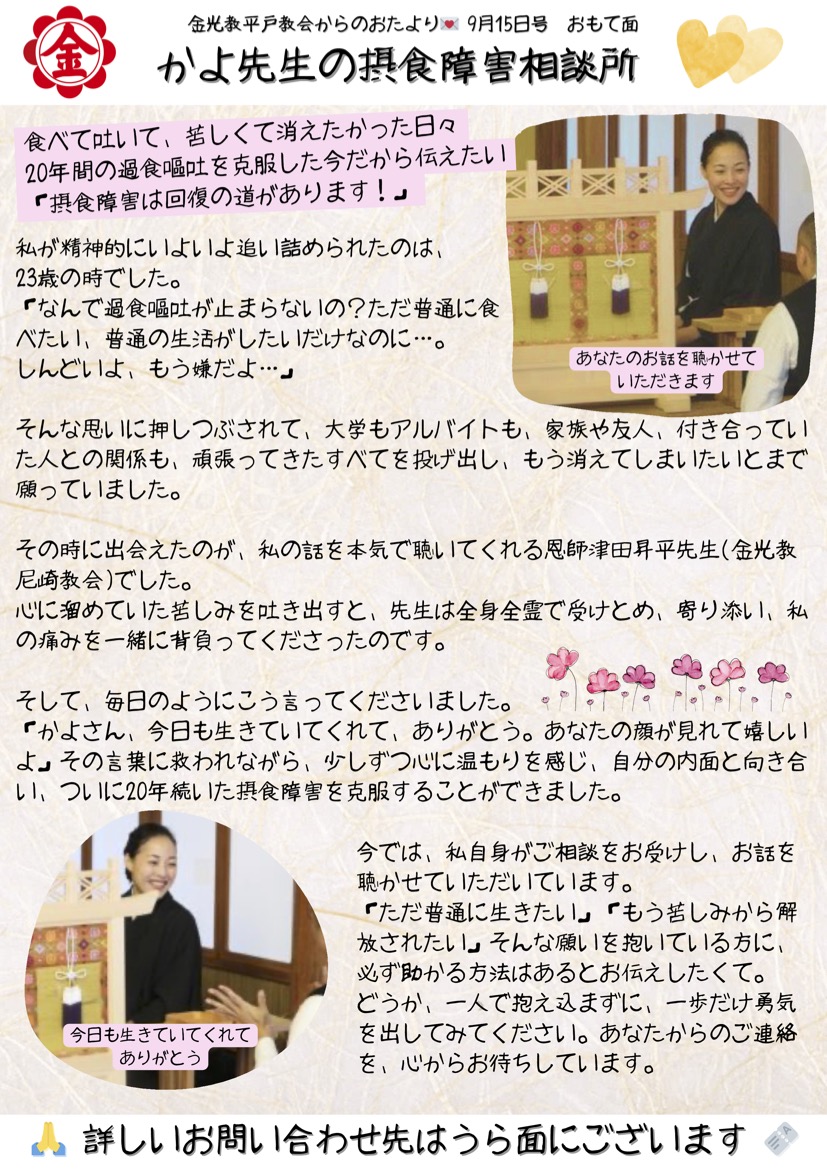 金
金光教平戸教会からのおたより💌 9月15日号　おもて面
かよ先生の摂食障害相談所
食べて吐いて、苦しくて消えたかった日々
20年間の過食嘔吐を克服した今だから伝えたい
『摂食障害は回復の道があります！』
私が精神的にいよいよ追い詰められたのは、
23歳の時でした。
『なんで過食嘔吐が止まらないの？ただ普通に食
べたい、普通の生活がしたいだけなのに…。
しんどいよ、もう嫌だよ…』
あなたのお話を聴かせて
いただきます
そんな思いに押しつぶされて、大学もアルバイトも、家族や友人、付き合ってい
た人との関係も、頑張ってきたすべてを投げ出し、もう消えてしまいたいとまで
願っていました。
その時に出会えたのが、私の話を本気で聴いてくれる恩師津田昇平先生(金光教
尼崎教会)でした。
心に溜めていた苦しみを吐き出すと、先生は全身全霊で受けとめ、寄り添い、私
の痛みを一緒に背負ってくださったのです。
そして、毎日のようにこう言ってくださいました。
『かよさん、今日も生きていてくれて、ありがとう。あなたの顔が見れて嬉しい
よ』その言葉に救われながら、少しずつ心に温もりを感じ、自分の内面と向き合
い、ついに20年続いた摂食障害を克服することができました。
今日も生きていてくれて
ありがとう
今では、私自身がご相談をお受けし、お話を
聴かせていただいています。
『ただ普通に生きたい』『もう苦しみから解
放されたい』そんな願いを抱いている方に、
必ず助かる方法はあるとお伝えしたくて。
どうか、一人で抱え込まずに、一歩だけ勇気
を出してみてください。あなたからのご連絡
を、心からお待ちしています。
🙏 詳しいお問い合わせ先はうら面にございます 🗞️